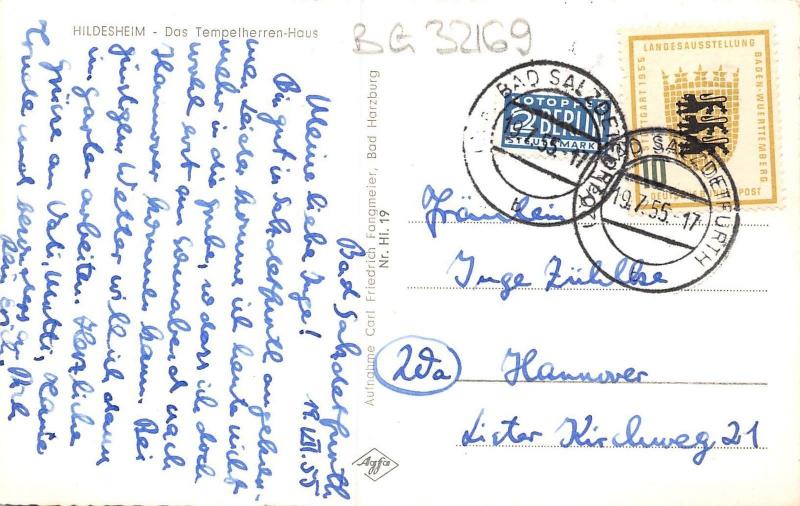 HILDESHEIM - Das Tempelherren-Haus
BG 32169
Bad Salzdetfurth
19.VII.55
Meine liebe Inge!
Bin gut in Salzdetfurth angekom-
men. Leider komme ich heute nicht
mehr in die Grube, so dass ich doch
wohl erst am Sonnabend nach
Hannover kommen kann. Bei
günstigem Wetter will ich dann
im Garten arbeiten. Herzliche
Grüsse an Vati, Mutti,
und
Dein
Aufnahme Carl Friedrich Fangmeier, Bad Harzburg
Nr. Hi. 19
Agfa
NOTOPFER
2 BERLIN
STEUERMARKE
STUTTGART 1955
LANDESAUSSTELLUNG
BADEN-WUERTTEMBERG
10
DEUTSCHE BUNDESPOST
BAD SALZDETFURTH
19.7.55-17
BAD SALZDETFURTH
19.7.55-17
Fräulein
Inge Zühlke
20a
Hannover
Lister Kirchweg 21